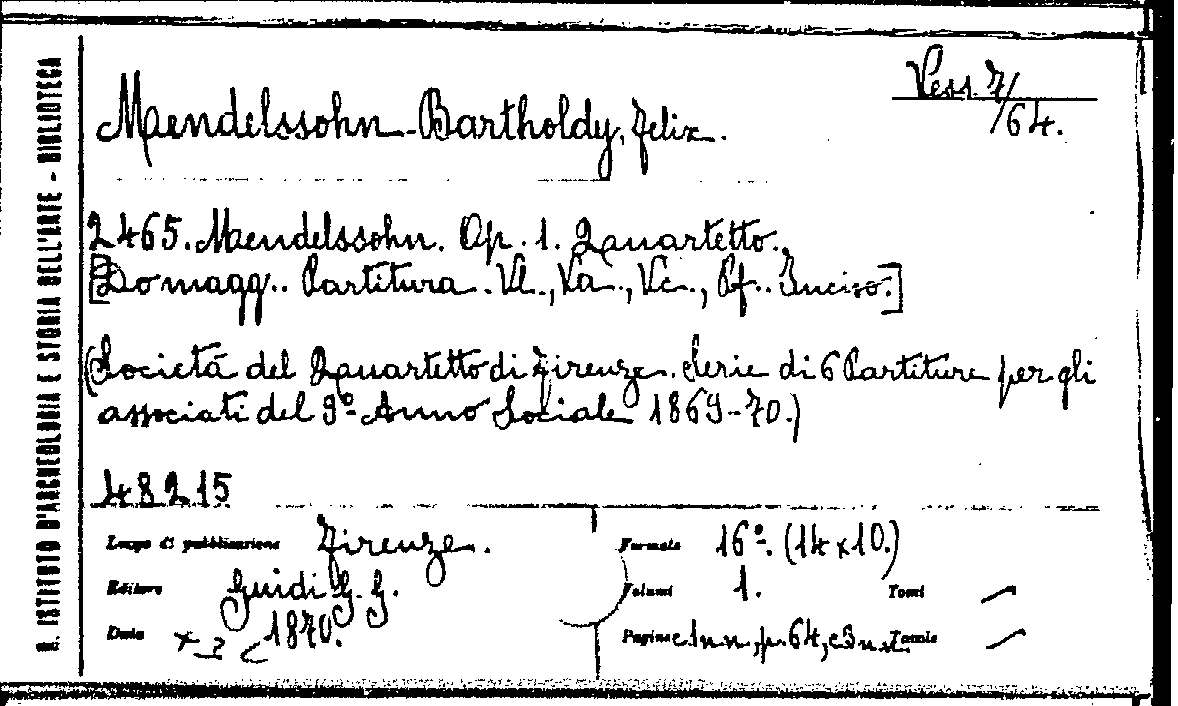 R. ISTITUTO D'ARCHEOLOGIA E STORIA DELL'ARTE - BIBLIOTECA
Vess. 7/
/64.
Mendelssohn-Bartholdy, Felix.
2465. Mendelssohn. Op. 1. Quartetto.,
[Do magg.. Partitura. Vl., Va., Vc., Pf.. Inciso.]
(Società del Quartetto di Firenze. Serie di 6 Partiture per gli
associati del 9º Anno Sociale 1869-70.)
48215
Luogo di pubblicazione Firenze.
Formato 16º. (14x10.)
Editore Guidi G. G.
Volumi 1. Tomi —
Data 1870.
Pagine c.1 n.n., p. 64, c.3 n.n. Tavole —